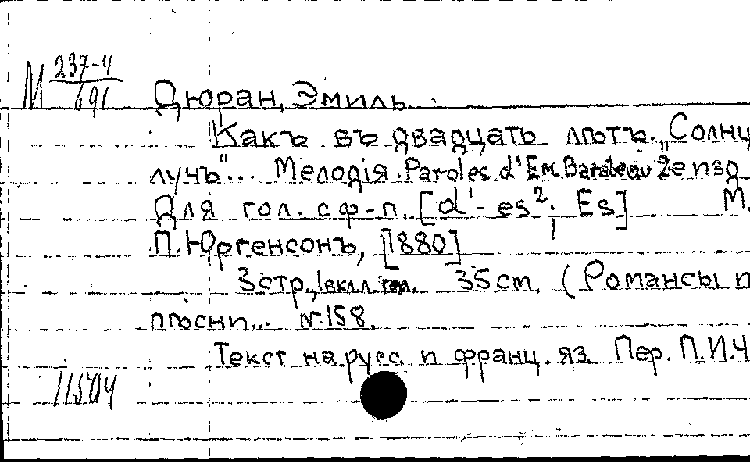 М 237-4/691
Дюран, Эмиль.
Какъ въ двадцать лѣтъ. „Солнц
лучъ"... Мелодія. Paroles d'Em. Barateau 2е изд
Для гол. с ф-п. [d¹-es²; Es] М.
П. Юргенсонъ, [1880]
3 стр., 35 cm. (Романсы п
пѣсни... №158.
Текст на русс. и франц. яз. Пер. П.И.Ч